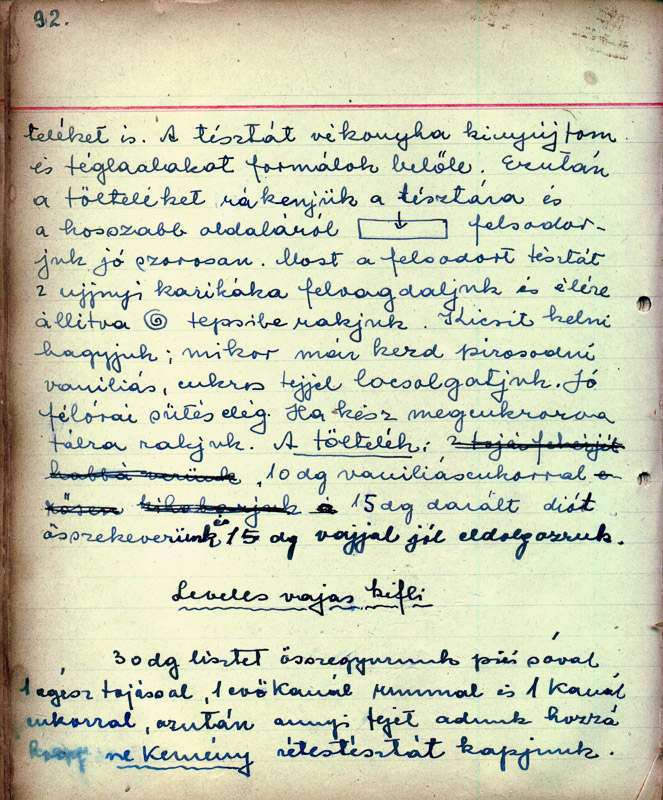 92.
teléket is. A tésztát vékonyha kinyújtom
és téglaalakot formálok belőle. Ezután
a tölteléket rákenjük a tésztára és
a hosszabb oldaláról felsodor-
juk jó szorosan. Most a felsodort tésztát
2 ujjnyi karikáka felvagdaljuk és élére
állitva tepsibe rakjuk. Kicsit kelni
hagyjuk; mikor már kezd pirosodni
vaniliás, cukros tejjel locsolgatjuk. Jó
félórai sütés elég. Ha kész megcukrozva
tálra rakjuk. A töltelék: 2 tojásfehérjét
habbá verünk, 10 dg vaniliáscukorral
kihabarjuk 15 dg darált diót
összekeverünk és 15 dg vajjal jól eldolgozzuk.
Leveles vajas kifli
30 dg lisztet összegyurunk pici sóval
1 egész tojással, 1 evőkanál rummal és 1 kanál
cukorral, azután annyi tejet adunk hozzá
hogy ne kemény rétestésztát kapjunk.